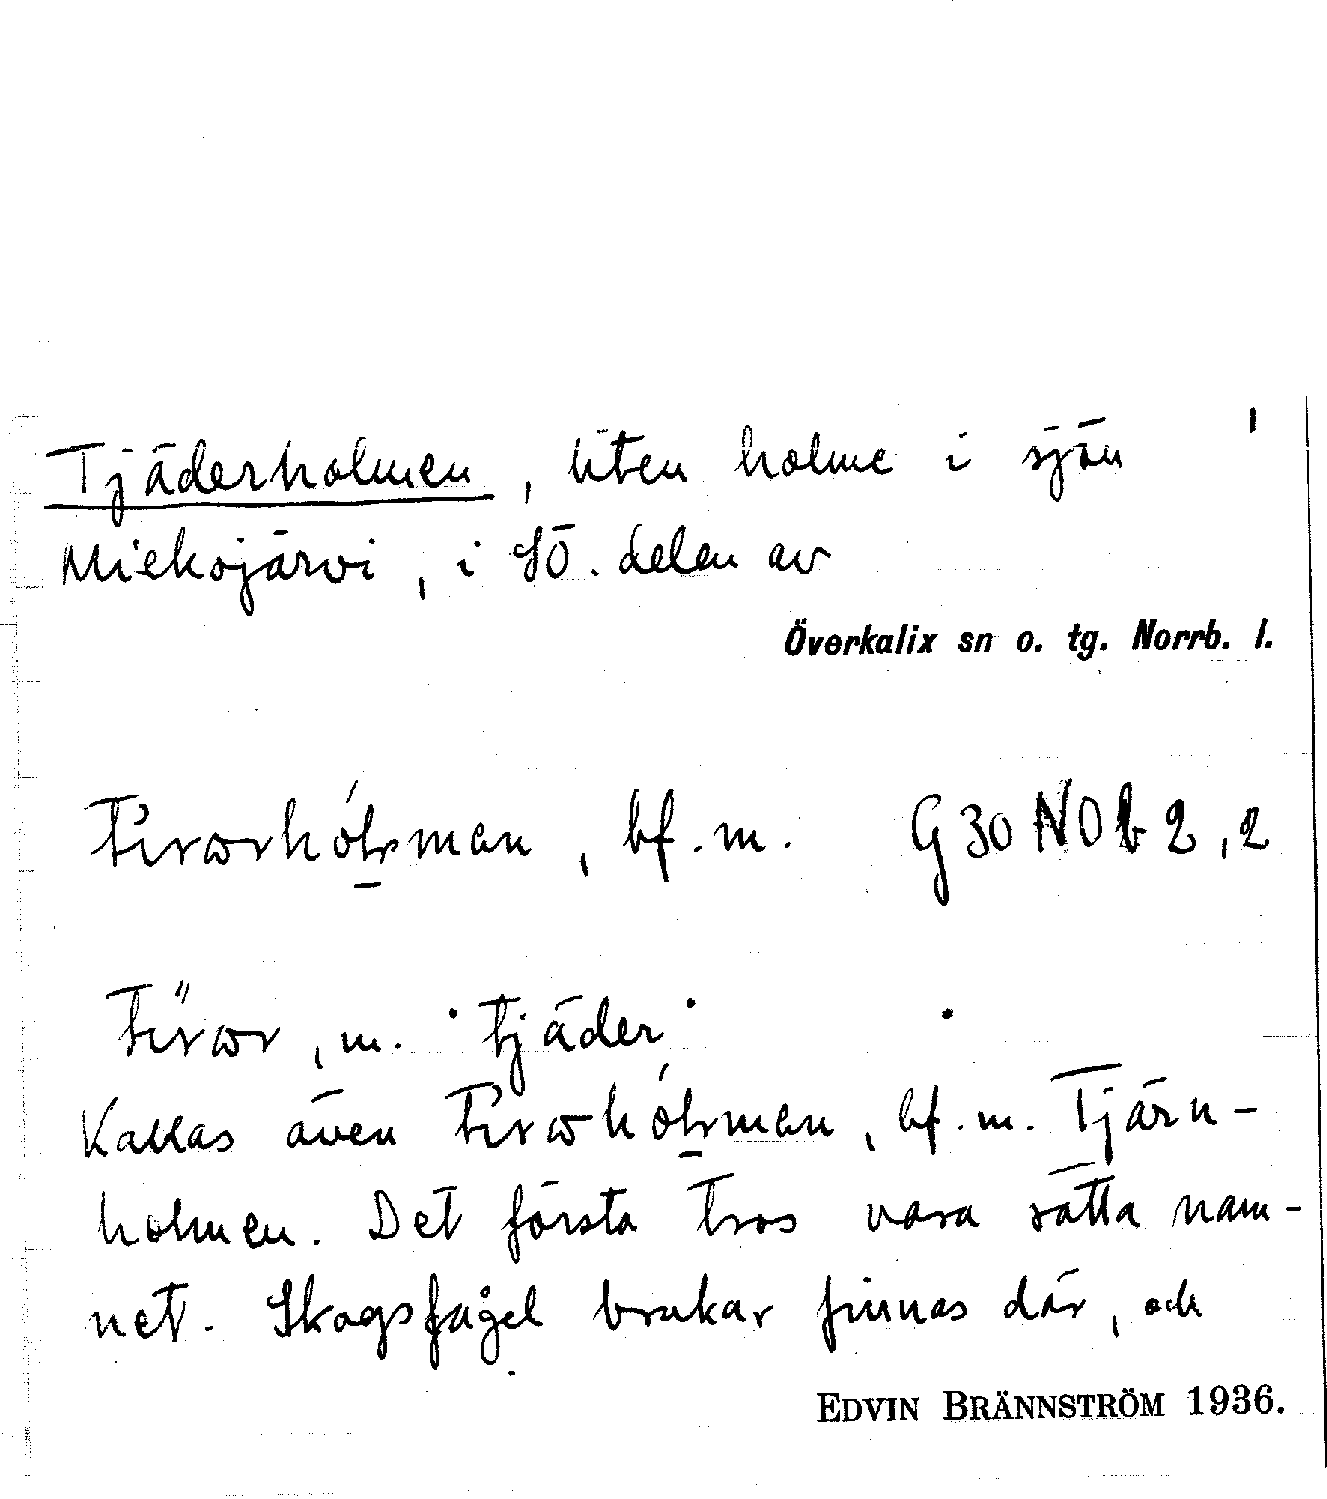 Tjäderholmen, liten holme i sjön 1
Miekojärvi, i SÖ. delen av
Överkalix sn o. tg. Norrb. l.
bf. m. G 30 NO b 2,2
m. 'tjäder'
Kallas även bf. m. Tjärn-
holmen. Det första tros vara rätta nam-
net. Skogsfågel brukar finnas där, och
EDVIN BRÄNNSTRÖM 1936.